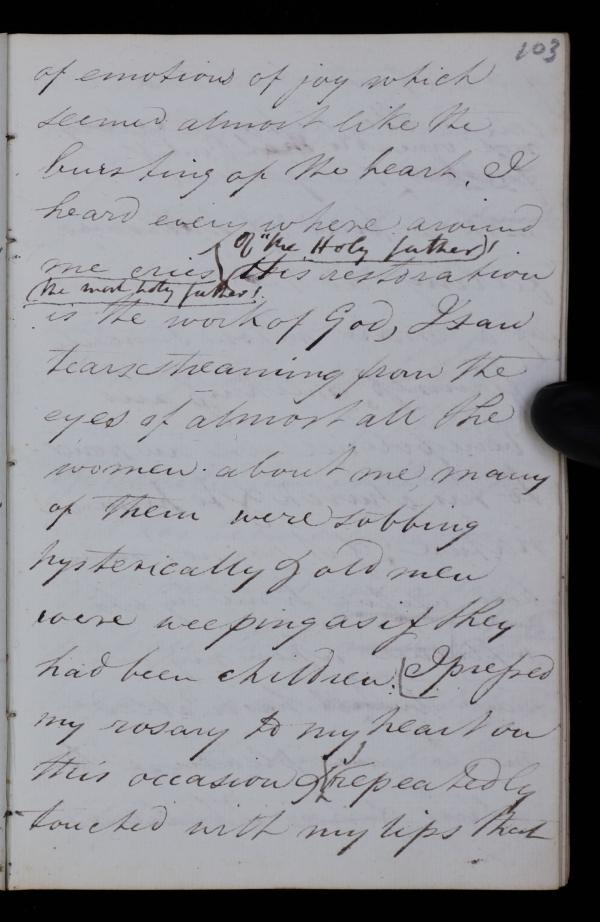 103
of emotions of joy which
seemed almost like the
bursting of the heart. I
heard every where around
of "the Holy father"!
me cries His restoration
(the most holy father!
is the work of God, I saw
tears streaming from the
eyes of almost all the
women about me many
of them were sobbing
hysterically & old men
were weeping as if they
had been children. I pressed
my rosary to my heart on
this occasion & repeatedly
touched with my lips that